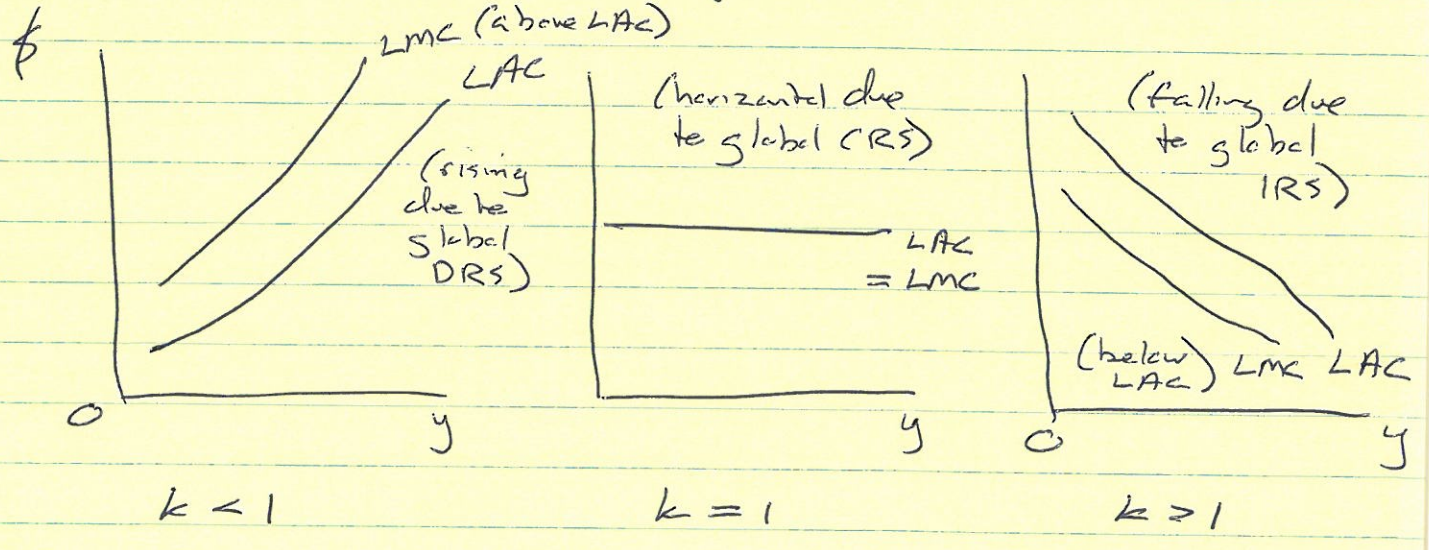 $
LMC (above LAC)
LAC
(rising
due to
global
DRS)
O
y
k < 1
(horizontal due
to global CRS)
LAC
= LMC
y
k = 1
(falling due
to global
IRS)
(below
LAC)
LMC LAC
O
y
k > 1